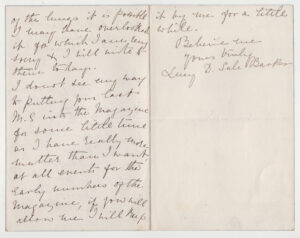 of the things it is possible
I may have overlooked
it for which I am very
sorry & I will write to
them to day.
I do not see my way
to putting your last
M.S. into the Magazine
for some little time
as I have really more
matter than I want
at all events for the
early numbers of the
Magazine, if you will
allow me I will keep
it by me for a little
while.
Believe me
Yours truly
Lucy E. Sale Barker